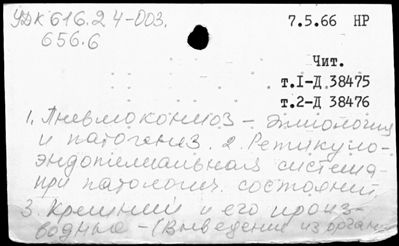 УДК 616.24-003.
656.6
7.5.66 НР
Чит.
т.I-Д 38475
т.2-Д 38476
1. Пневмокониоз - Этиология
и патогенез. 2. Ретикуло-
эндотелиальная система -
при патологич. состояний
3. Кремний и его произ-
водные - (Выведение из орган